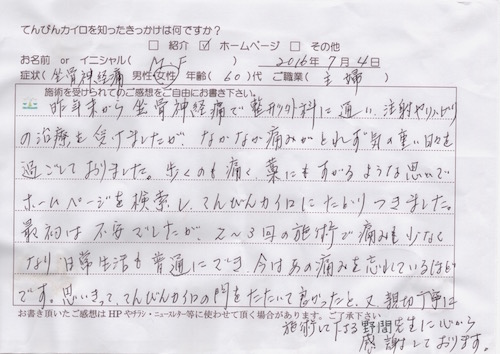 てんびんカイロを知ったきっかけは何ですか？
□ 紹介 ☑ ホームページ □ その他
お名前 or イニシャル( M.F ) 2016年 7月 4日
症状( 坐骨神経痛 ) 男性・女性 年齢( 60 )代 ご職業( 主婦 )
施術を受けられてのご感想をご自由にお書き下さい。
昨年末から坐骨神経痛で整形外科に通い、注射やリハビリ
の治療を受けましたが、なかなか痛みがとれず気の重い日々を
過ごしておりました。歩くのも痛く、藁にもすがるような思いで
ホームページを検索し、てんびんカイロにたどりつきました。
最初は不安でしたが、2～3回の施術で痛みも少なく
なり日常生活も普通にでき、今はあの痛みを忘れているほど
です。思いきって、てんびんカイロの門をたたいて良かったと、又親切丁寧に
お書き頂いたご感想はHPやチラシ・ニュースレター等に使わせて頂く場合があります。ご了承下さい
施術して下さる野間先生に心から
感謝しております。